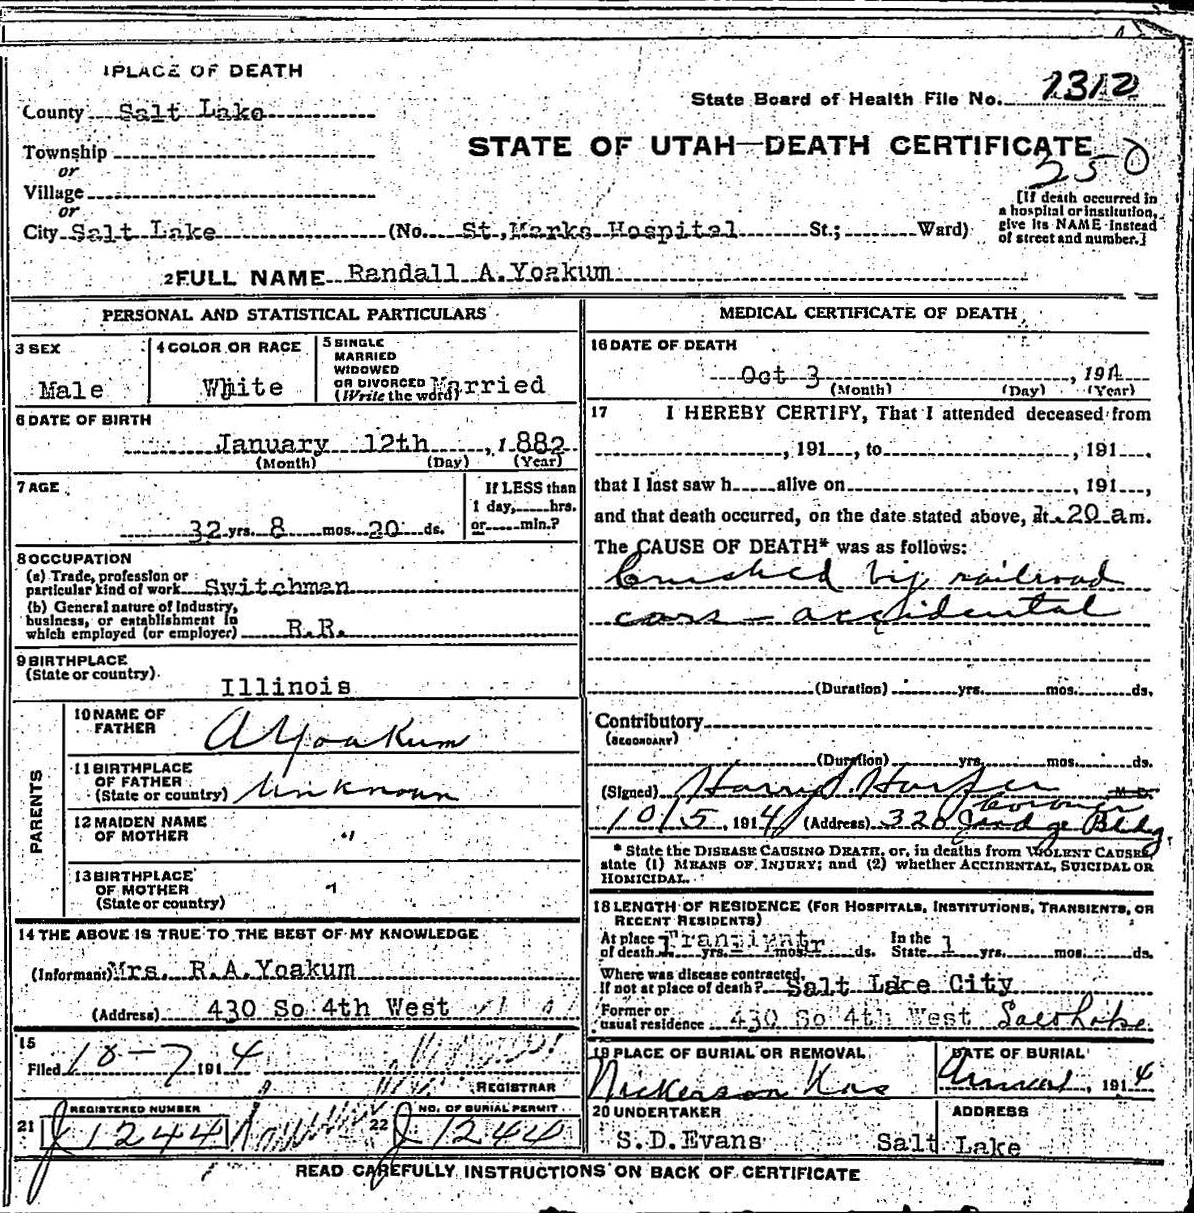 1 PLACE OF DEATH
County Salt Lake
State Board of Health File No. 1312
Township
or
STATE OF UTAH—DEATH CERTIFICATE
250
Village
or
[If death occurred in
a hospital or institution,
give its NAME instead
of street and number.]
City Salt Lake (No. St. Marks Hospital St.; Ward)
2 FULL NAME Randall A. Yoakum
PERSONAL AND STATISTICAL PARTICULARS
3 SEX
Male
4 COLOR OR RACE
White
5 SINGLE
MARRIED
WIDOWED
OR DIVORCED
(Write the word) Married
6 DATE OF BIRTH
January 12th, 1882
(Month) (Day) (Year)
7 AGE
32 yrs. 8 mos. 20 ds.
If LESS than
1 day, hrs.
or min.?
8 OCCUPATION
(a) Trade, profession or
particular kind of work Switchman
(b) General nature of industry,
business, or establishment in
which employed (or employer) R.R.
9 BIRTHPLACE
(State or country)
Illinois
PARENTS
10 NAME OF
FATHER
A Yoakum
11 BIRTHPLACE
OF FATHER
(State or country) Unknown
12 MAIDEN NAME
OF MOTHER "
13 BIRTHPLACE
OF MOTHER "
(State or country)
14 THE ABOVE IS TRUE TO THE BEST OF MY KNOWLEDGE
(Informant) Mrs. R.A.Yoakum
(Address) 430 So 4th West
15
Filed 10-7 1914
REGISTRAR
REGISTERED NUMBER
21 J 1244
NO. OF BURIAL PERMIT
22 J 1244
MEDICAL CERTIFICATE OF DEATH
16 DATE OF DEATH
Oct 3, 1914
(Month) (Day) (Year)
17 I HEREBY CERTIFY, That I attended deceased from
, 191 , to , 191 .
that I last saw h alive on , 191 ,
and that death occurred, on the date stated above, at 20 a m.
The CAUSE OF DEATH* was as follows:
Crushed by railroad
cars - accidental
(Duration) yrs. mos. ds.
Contributory
(SECONDARY)
(Duration) yrs. mos. ds.
(Signed) Harry S. Harper M.D.
Coroner
10/5, 1914 (Address) 320 Judge Bldg.
* State the DISEASE CAUSING DEATH, or, in deaths from VIOLENT CAUSES,
state (1) MEANS OF INJURY; and (2) whether ACCIDENTAL, SUICIDAL OR
HOMICIDAL.
18 LENGTH OF RESIDENCE (FOR HOSPITALS, INSTITUTIONS, TRANSIENTS, OR
RECENT RESIDENTS)
At place
of death 1 yrs. mos. ds. In the
State 1 yrs. mos. ds.
Where was disease contracted,
If not at place of death? Salt Lake City
Former or
usual residence 430 So 4th West Salt Lake
19 PLACE OF BURIAL OR REMOVAL
Nickerson Kas
DATE OF BURIAL
, 1914
20 UNDERTAKER
S.D.Evans
ADDRESS
Salt Lake
READ CAREFULLY INSTRUCTIONS ON BACK OF CERTIFICATE